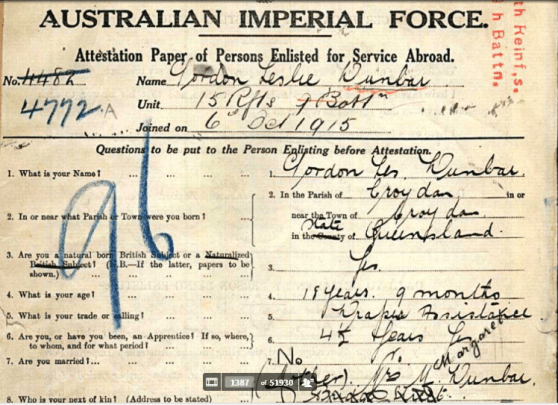 AUSTRALIAN IMPERIAL FORCE.
Attestation Paper of Persons Enlisted for Service Abroad.
th Reinf,s.
h Battn.
No. 4482
4772 A
Name Gordon Leslie Dunbar
Unit 15 Rfts 9 Battn
Joined on 6 Oct 1915
96
Questions to be put to the Person Enlisting before Attestation.
1. What is your Name? ... 1. Gordon Les. Dunbar.
2. In or near what Parish or Town were you born? ... 2. In the Parish of Croydon in or
near the Town of Croydon
State
in the County of Queensland.
3. Are you a natural born British Subject or a Naturalized
British Subject? (N.B.—If the latter, papers to be
shown.) 3. Yes.
4. What is your age? ... 4. 19 years. 9 months
5. What is your trade or calling? ... 5. Draper Assistance
6. Are you, or have you been, an Apprentice? If so, where,
to whom, and for what period? ... 6. 4½ Years
7. Are you married? ... 7. No
8. Who is your next of kin? (Address to be stated)
(Mother). Mrs M. Dunbar.
Margaret
1387 of 51930